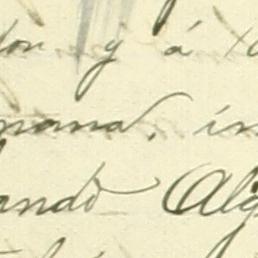 dor y á
mana, in
ando Alg